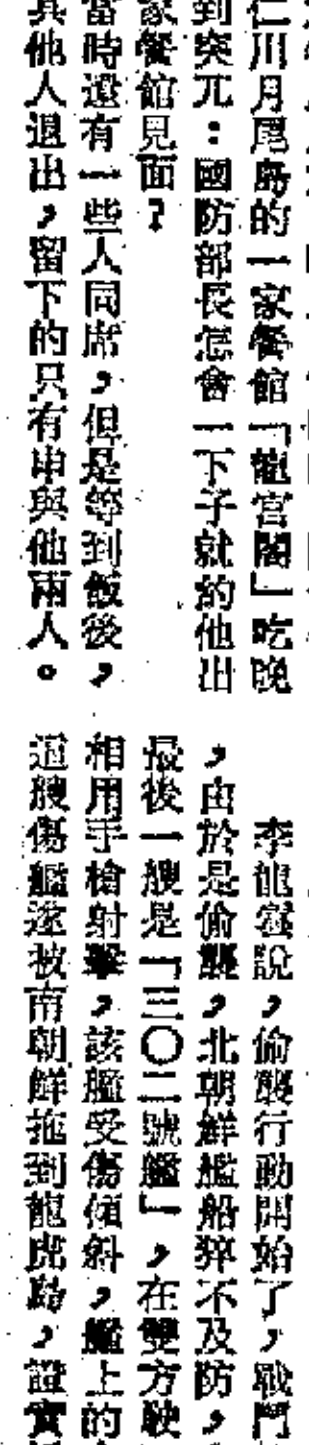 仁川月尾島的一家餐館「龍宮閣」吃晚
到突兀：國防部長怎會一下子就約他出
家餐館見面？
當時還有一些人同席，但是等到飯後，
其他人退出，留下的只有申與他兩人。
李龍雲說，偷襲行動開始了，戰鬥
，由於是偷襲，北朝鮮艦船猝不及防，
最後一艘是「三〇二號艦」，在雙方駛
相用手槍射擊，該艦受傷傾斜，艦上的
這艘傷艦遂被南朝鮮拖到龍虎島，證實